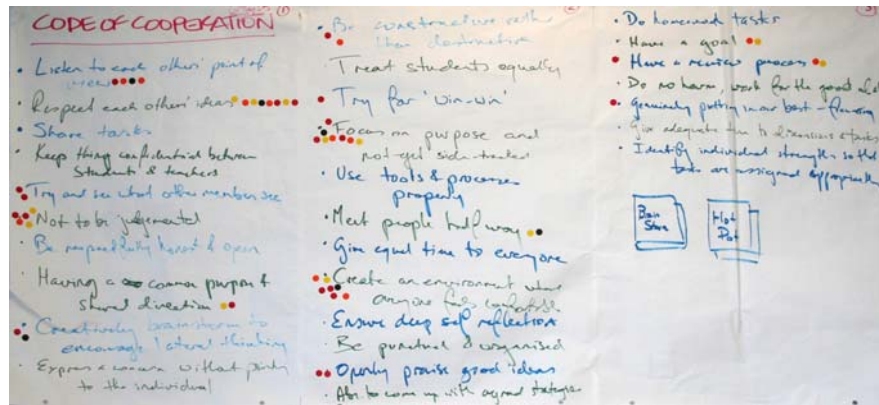 CODE OF COOPERATION ①
• Listen to each others' point of
view
• Respect each others' ideas
• Share tasks
• Keep thing confidential between
students & teachers
Try and see what other member see
Not to be judgemental
• Be respectfully honest & open
• Having a common purpose &
shared direction
• Creatively brainstorm to
encourage lateral thinking
• Express a concern without
to the individual
②
• Be constructive rather
than destructive
Treat students equally
• Try for 'win-win'
• Focus on purpose and
not get side-tracked
• Use tools & processes
properly
• Meet people half way
• Give equal time to everyone
• Create an environment where
anyone feels comfortable
• Ensure deep self reflection
• Be punctual & organised
Openly praise good ideas
• Able to come up with agreed strategies
③
• Do homework tasks
• Have a goal
• Have a review process
• Do no harm, work for the good of
• Genuinely putting in our best -
• Give adequate time to discussions & tasks
• Identify individual strengths so that
tasks are assigned appropriately
Brain
Store
Hot
Pot